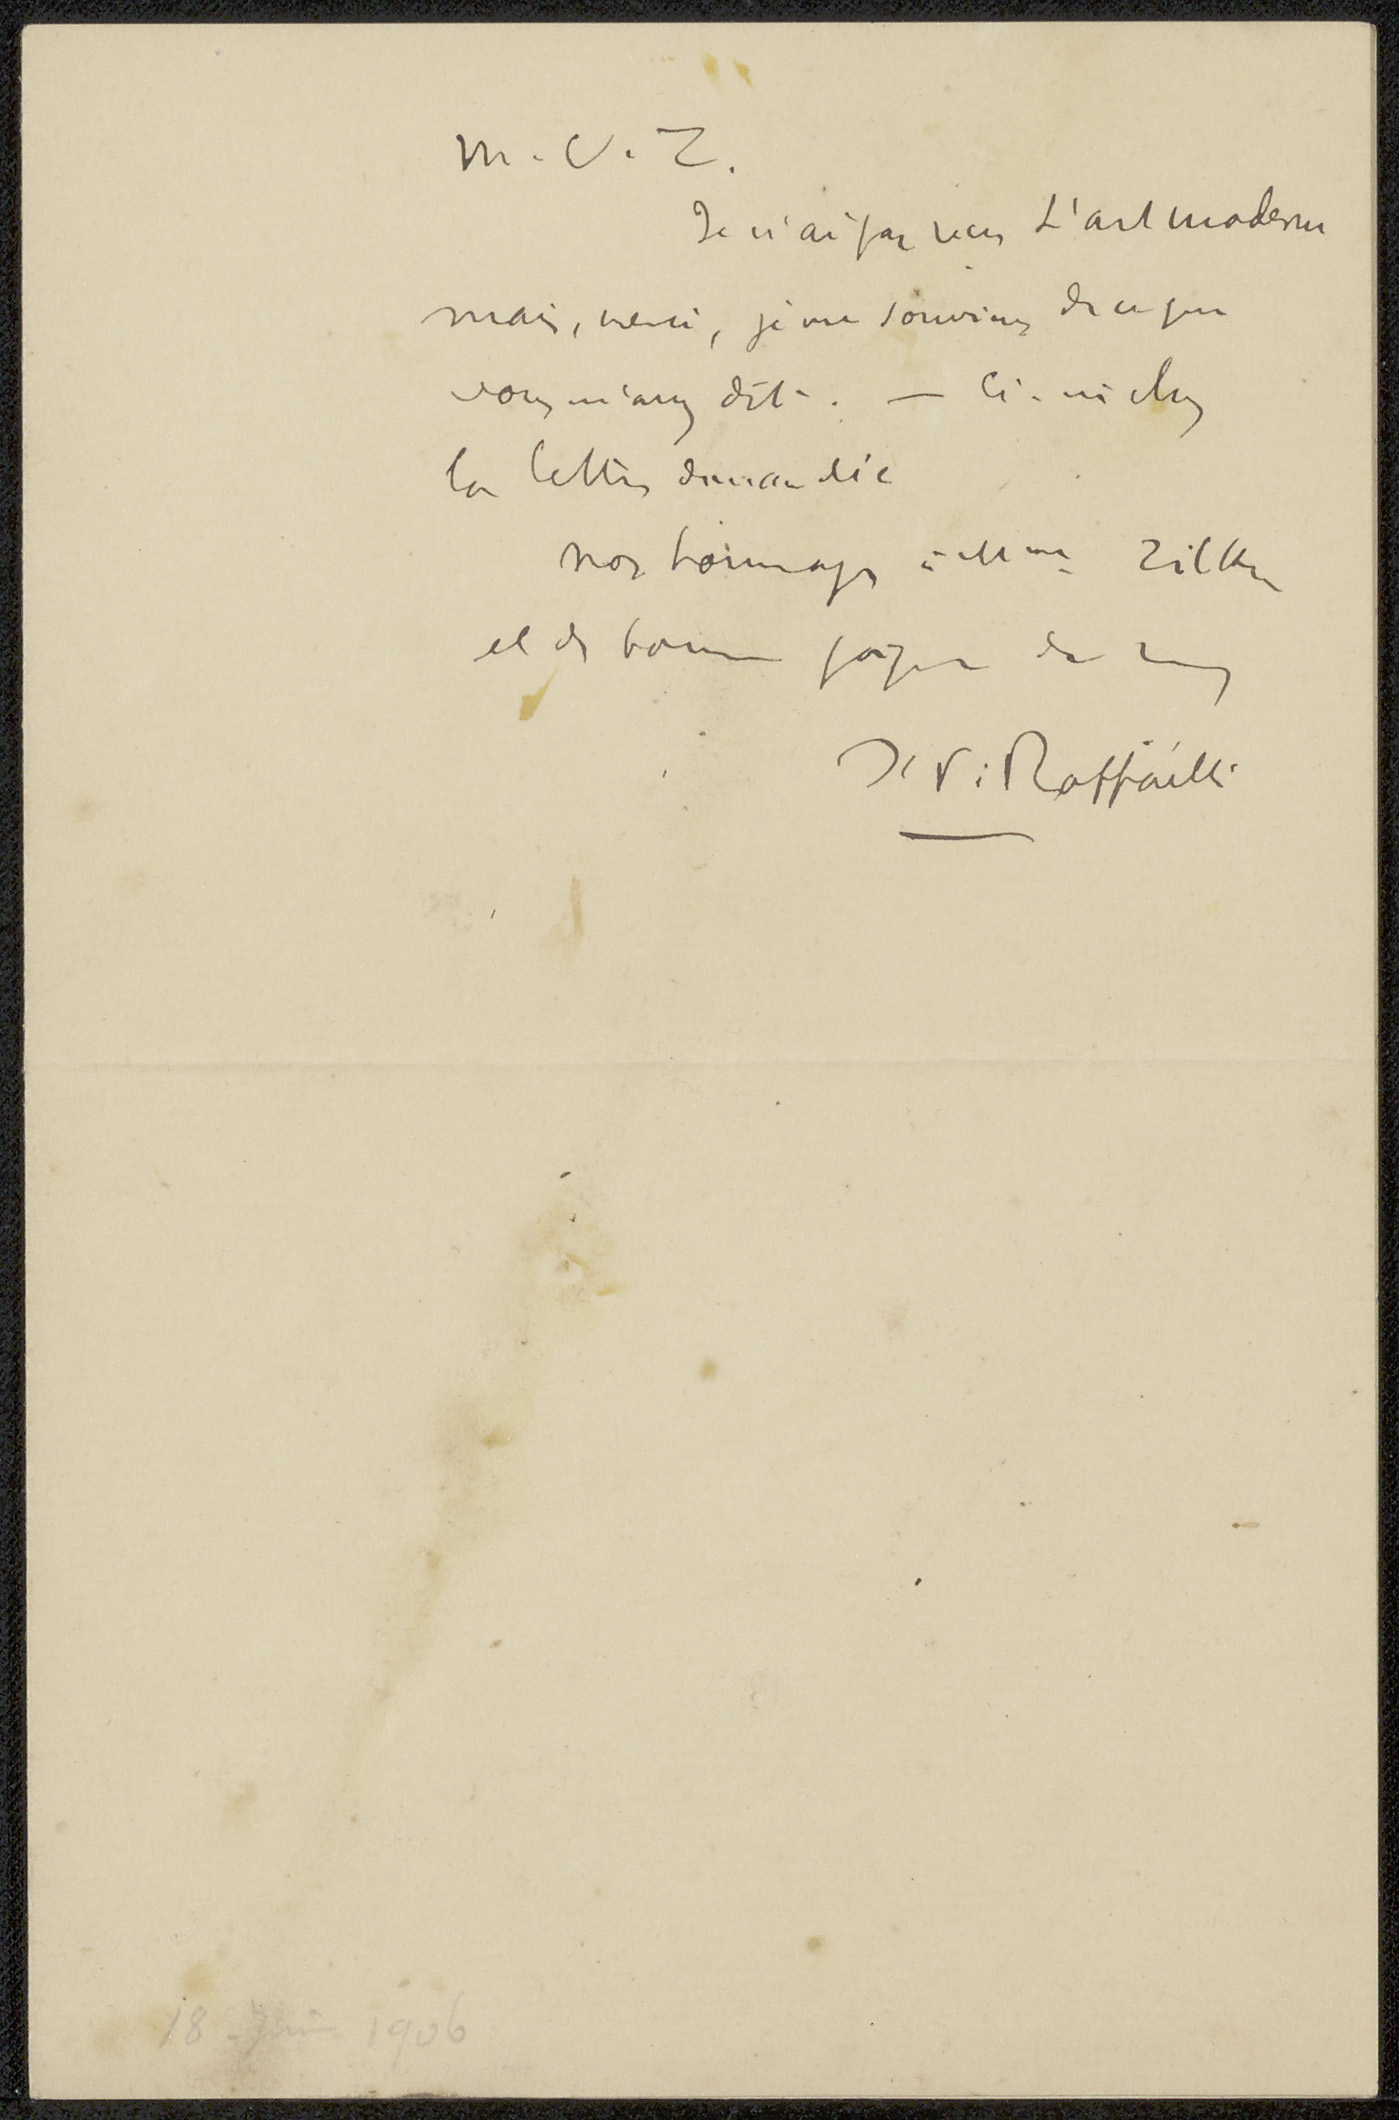 M. C. Z.
Je n'ai pas reçu L'art moderne
mais, merci, je me souviens de ce que
vous m'avez dit. — Ci-inclus
la lettre demandée
nos hommages à Mme Zilcken
et de bonnes poignées de mains
J. F. Raffaëlli
18 Juin 1906